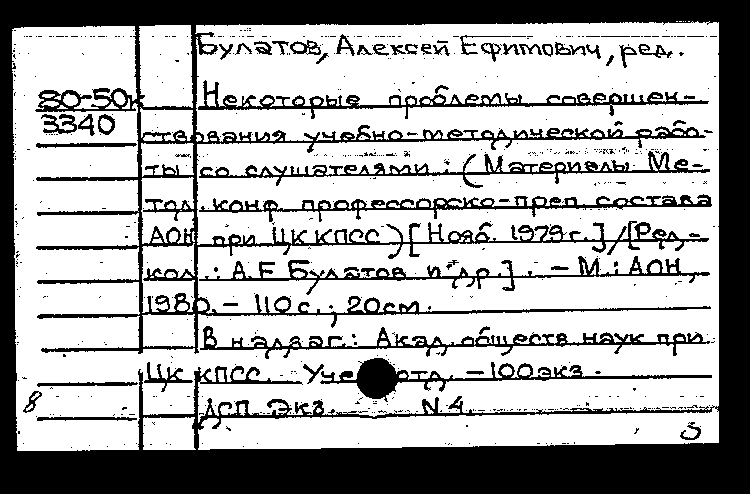 Булатов, Алексей Ефимович, ред.
80-50к Некоторые проблемы совершен-
3340 ствования учебно-методической рабо-
ты со слушателями: (Материалы Ме-
тод. конф. профессорско-преп. состава
АОН при ЦК КПСС) [Нояб. 1979 г.] / [Ред.-
кол.: А.Е Булатов и др.]. - М.: АОН,
1980. - 110 с.; 20 см.
В надзаг.: Акад. обществ наук при
ЦК КПСС. Уче отд. - 100 экз.
ДСП Экз. N 4.
8